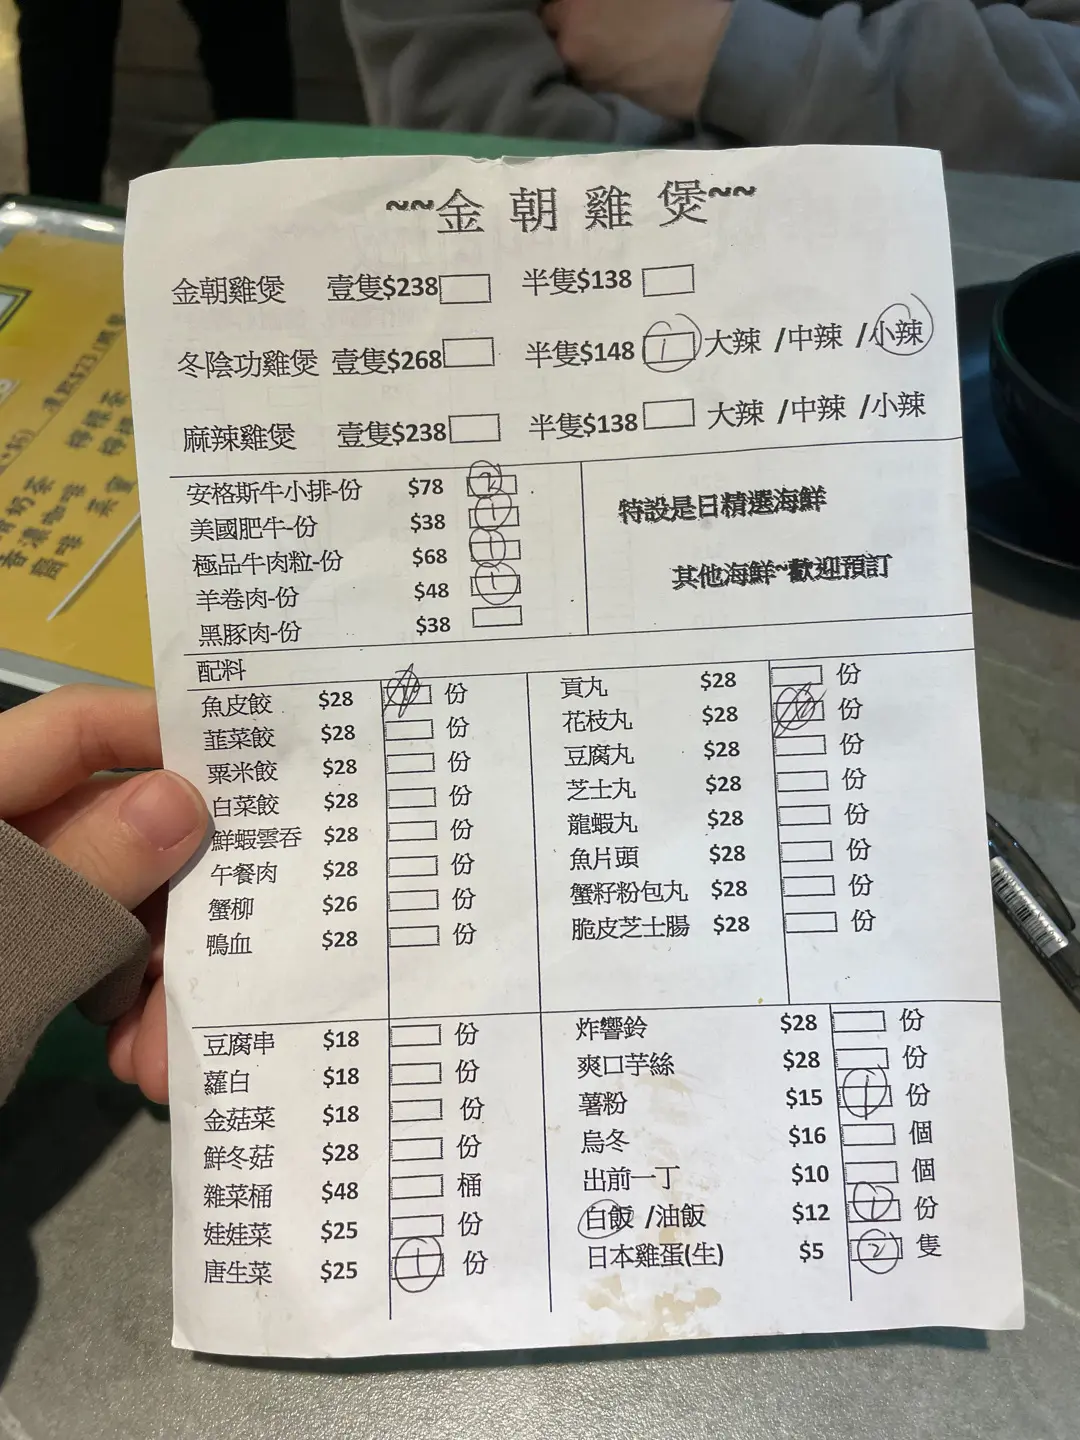 ~~金朝雞煲~~
金朝雞煲 壹隻$238 半隻$138
冬陰功雞煲 壹隻$268 半隻$148 1 大辣 /中辣 /小辣
麻辣雞煲 壹隻$238 半隻$138 大辣 /中辣 /小辣
安格斯牛小排-份 $78 2
美國肥牛-份 $38 1
極品牛肉粒-份 $68 1
羊卷肉-份 $48 1
黑豚肉-份 $38
特設是日精選海鮮
其他海鮮~歡迎預訂
配料
魚皮餃 $28 份
韮菜餃 $28 份
粟米餃 $28 份
白菜餃 $28 份
鮮蝦雲吞 $28 份
午餐肉 $28 份
蟹柳 $26 份
鴨血 $28 份
貢丸 $28 份
花枝丸 $28 份
豆腐丸 $28 份
芝士丸 $28 份
龍蝦丸 $28 份
魚片頭 $28 份
蟹籽粉包丸 $28 份
脆皮芝士腸 $28 份
豆腐串 $18 份
蘿白 $18 份
金菇菜 $18 份
鮮冬菇 $28 份
雜菜桶 $48 桶
娃娃菜 $25 份
唐生菜 $25 1 份
炸響鈴 $28 份
爽口芋絲 $28 份
薯粉 $15 1 份
烏冬 $16 個
出前一丁 $10 個
白飯 /油飯 $12 1 份
日本雞蛋(生) $5 2 隻
凍飲$23
檸檬茶
奶茶
咖啡